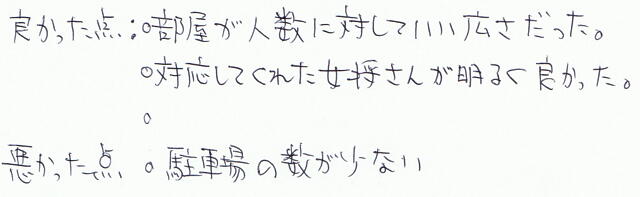 良かった点:○部屋が人数に対していい広さだった。
○対応してくれた女将さんが明るく良かった。
○
悪かった点 ○駐車場の数が少ない